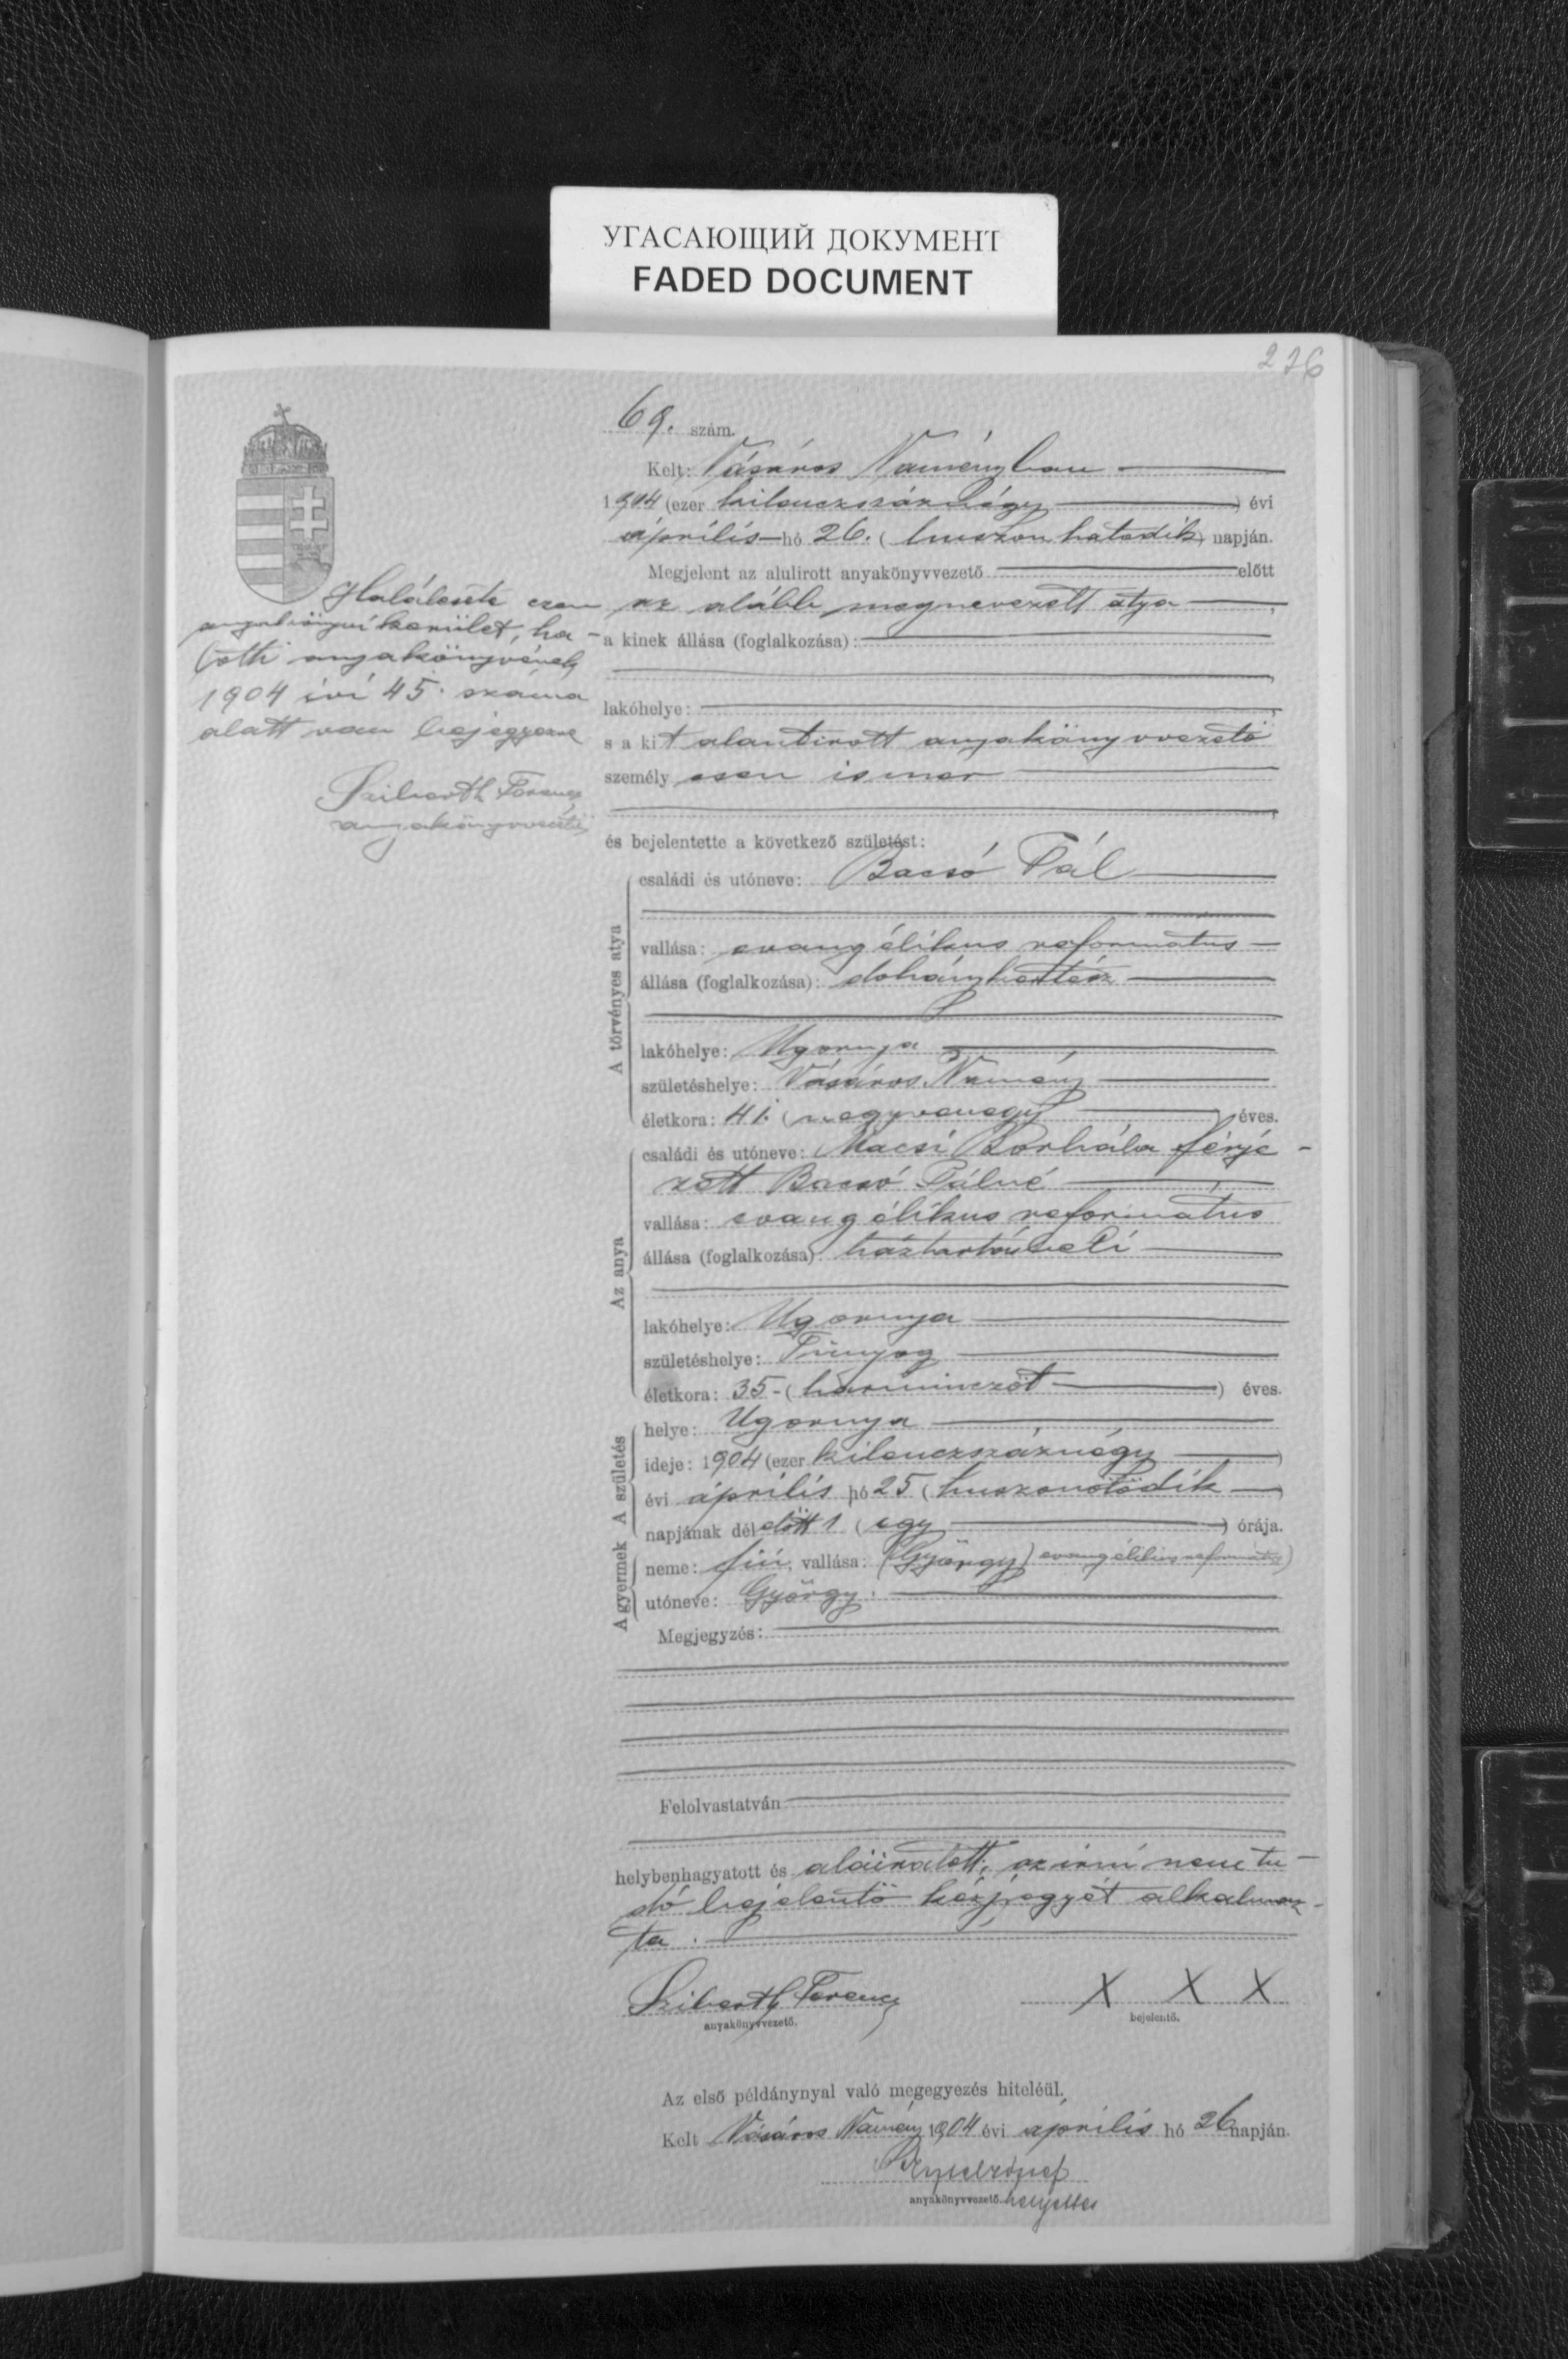 УГАСАЮЩИЙ ДОКУМЕНТ
FADED DOCUMENT
226
69. szám.
Kelt: Vásáros Naményban
1904 (ezer kilenczszáznégy) évi
április hó 26. (huszonhatodik) napján.
Megjelent az alulirott anyakönyvvezető előtt
az alább megnevezett atya,
a kinek állása (foglalkozása):
lakóhelye:
s a kit alantirott anyakönyvvezető
személyesen ismer
és bejelentette a következő születést:
A törvényes atya
családi és utóneve: Bacsó Pál
vallása: evangélikus református
állása (foglalkozása): dohánykertész
lakóhelye: Ugornya
születéshelye: Vásáros Namény
életkora: 41. (negyvenegy) éves.
Az anya
családi és utóneve: Macsi Borbála férje-
zett Bacsó Pálné
vallása: evangélikus református
állása (foglalkozása): háztartásbeli
lakóhelye: Ugornya
születéshelye: Tunyog
életkora: 35 (harminczöt) éves.
A születés
helye: Ugornya
ideje: 1904 (ezer kilenczszáznégy)
évi április hó 25 (huszonötödik)
napjának délelőtt 1 (egy) órája.
A gyermek
neme: fiú, vallása: (György) evangélikus református)
utóneve: György.
Megjegyzés:
Felolvastatván
helybenhagyatott és aláiratott, az irni nem tu-
dó bejelentő kézjegyét alkalmaz-
ta.
Sziberth Ferencz
anyakönyvvezető.
X X X
bejelentő.
Az első példánynyal való megegyezés hiteléül.
Kelt Vásáros Namény 1904 évi április hó 26 napján.
anyakönyvvezető helyettes
Halálesete ezen
anyakönyvi kerület, ha-
lotti anyakönyvének
1904 évi 45. száma
alatt van bejegyezve
Sziberth Ferencz
anyakönyvvezető